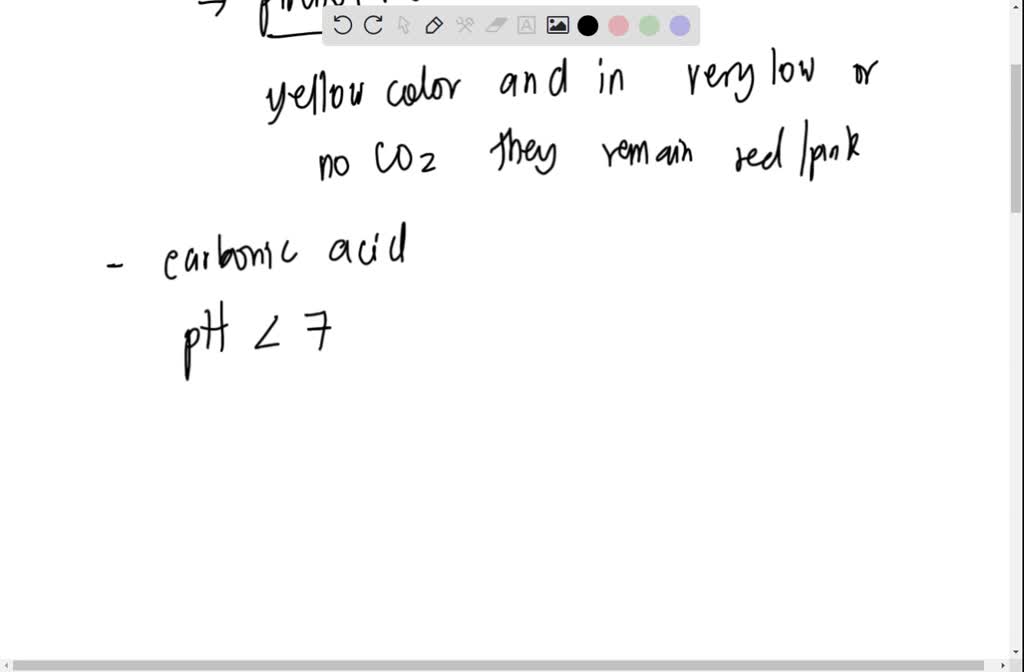 →
yellow color and in very low or
no CO2 they remain red/pink
- carbonic acid
pH < 7